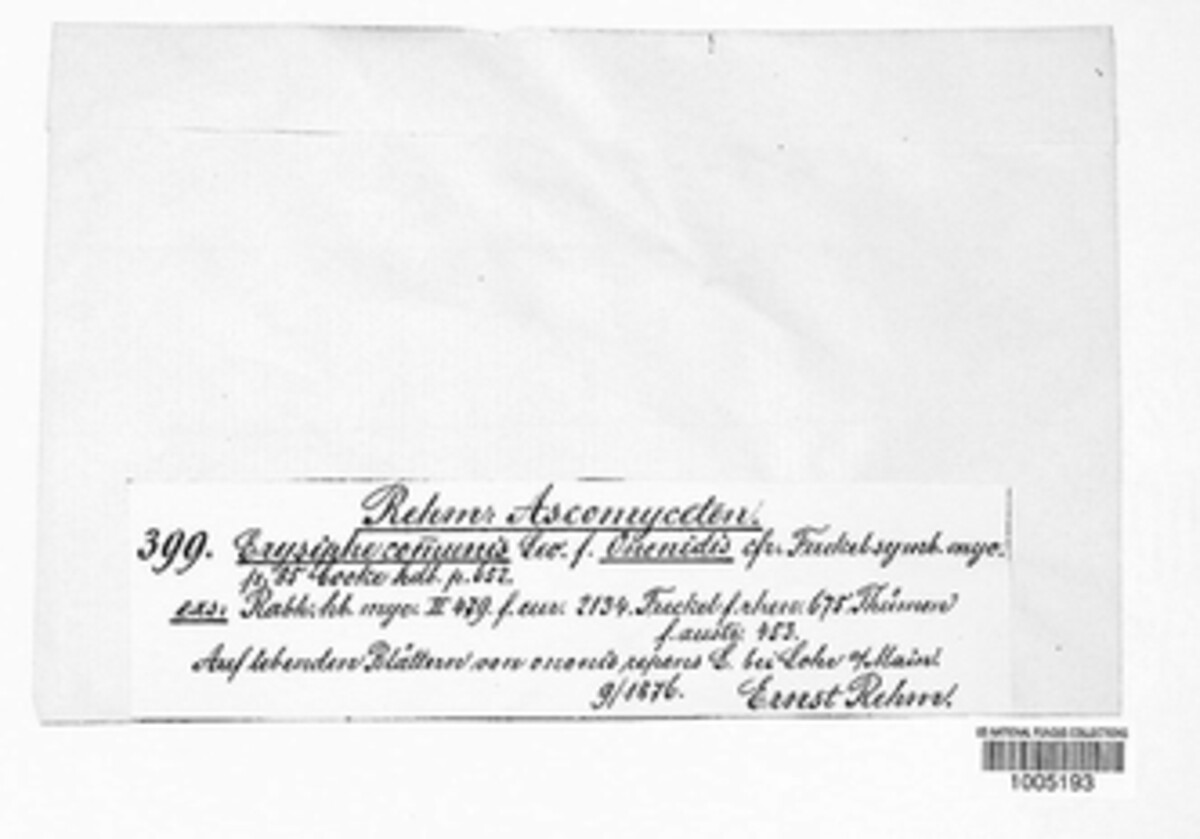 Rehm: Ascomyceten.
399. Erysiphe com̅unis Lev. f. Ononidis cfr. Fuckel symb. myc.
p. 85 Cooke hdb. p. 652.
exs: Rabh. hb. myc. II 479. f. eur. 2134. Fuckel f. rhen. 675. Thümen
f. austr. 453.
Auf lebenden Blättern von ononis repens L. bei Lohr a/Main.
9/1876. Ernst Rehm.
US NATIONAL FUNGUS COLLECTIONS
1005193